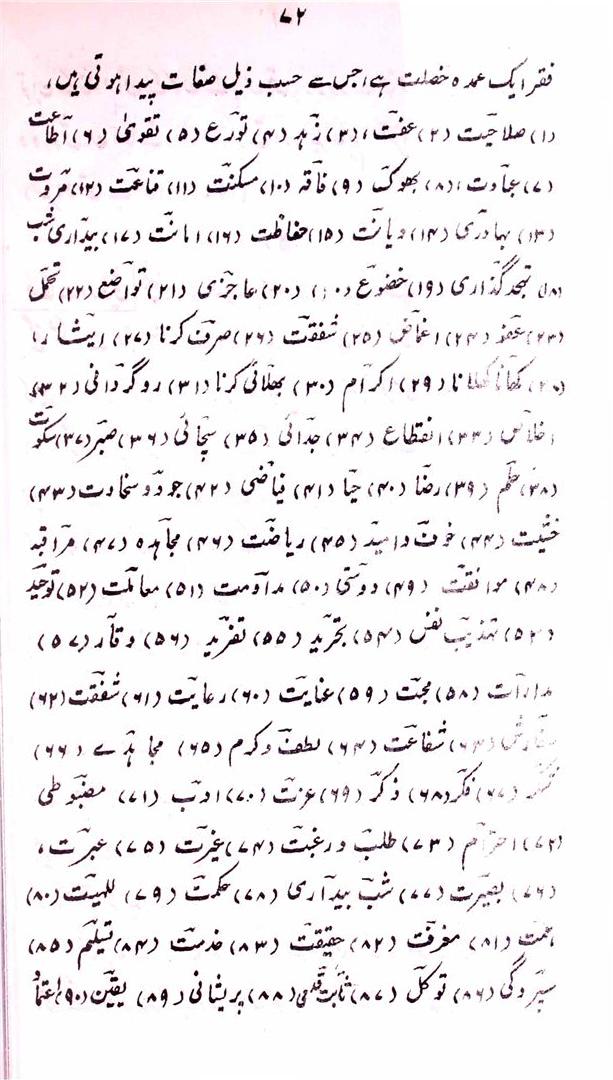 ۷۲
فقر ایک عمدہ خصلت ہے، جس سے حسب ذیل صفات پیدا ہوتی ہیں،
(۱) صلاحیت (۲) عفت، (۳) زہد (۴) تورع (۵) تقویٰ (۶) اطاعت
(۷) عبادت، (۸) بھوک (۹) فاقہ (۱۰) مسکنت (۱۱) قناعت (۱۲) مروت
(۱۳) بہادری (۱۴) دیانت (۱۵) حفاظت (۱۶) امانت (۱۷) بیداری شب
(۱۸) تہجد گذاری (۱۹) خضوع (۲۰) عاجزی (۲۱) تواضع (۲۲) تحمل
(۲۳) عفو (۲۴) اغماض (۲۵) شفقت (۲۶) صرف کرنا (۲۷) ایثار
کھانا کھلانا (۲۹) اکرام (۳۰) بھلائی کرنا (۳۱) روگردانی (۳۲)
اخلاص (۳۳) انقطاع (۳۴) جدائی (۳۵) سچائی (۳۶) صبر (۳۷) سکوت
(۳۸) حلم (۳۹) رضا (۴۰) حیا (۴۱) فیاضی (۴۲) جود و سخاوت (۴۳)
خشیت (۴۴) خوف و امید (۴۵) ریاضت (۴۶) مجاہدہ (۴۷) مراقبہ
(۴۸) موافقت (۴۹) دوستی (۵۰) مداومت (۵۱) معاملت (۵۲) توحید
(۵۳) تہذیب نفس (۵۴) تجرید (۵۵) تفرید (۵۶) وقار (۵۷)
مدارات (۵۸) محبت (۵۹) عنایت (۶۰) رعایت (۶۱) شفقت (۶۲)
سفارش (۶۳) شفاعت (۶۴) لطف و کرم (۶۵) مجاہدے (۶۶)
(۶۷) فکر (۶۸) ذکر (۶۹) عزت (۷۰) ادب (۷۱) مضبوطی
(۷۲) احترام (۷۳) طلب و رغبت (۷۴) غیرت (۷۵) عبرت،
(۷۶) بصیرت (۷۷) شب بیداری (۷۸) حکمت (۷۹) للہیت (۸۰)
ہمت (۸۱) معرفت (۸۲) حقیقت (۸۳) خدمت (۸۴) تسلیم (۸۵)
سپردگی (۸۶) توکل (۸۷) ثابت قلمی (۸۸) پریشانی (۸۹) یقین (۹۰) اعتماد